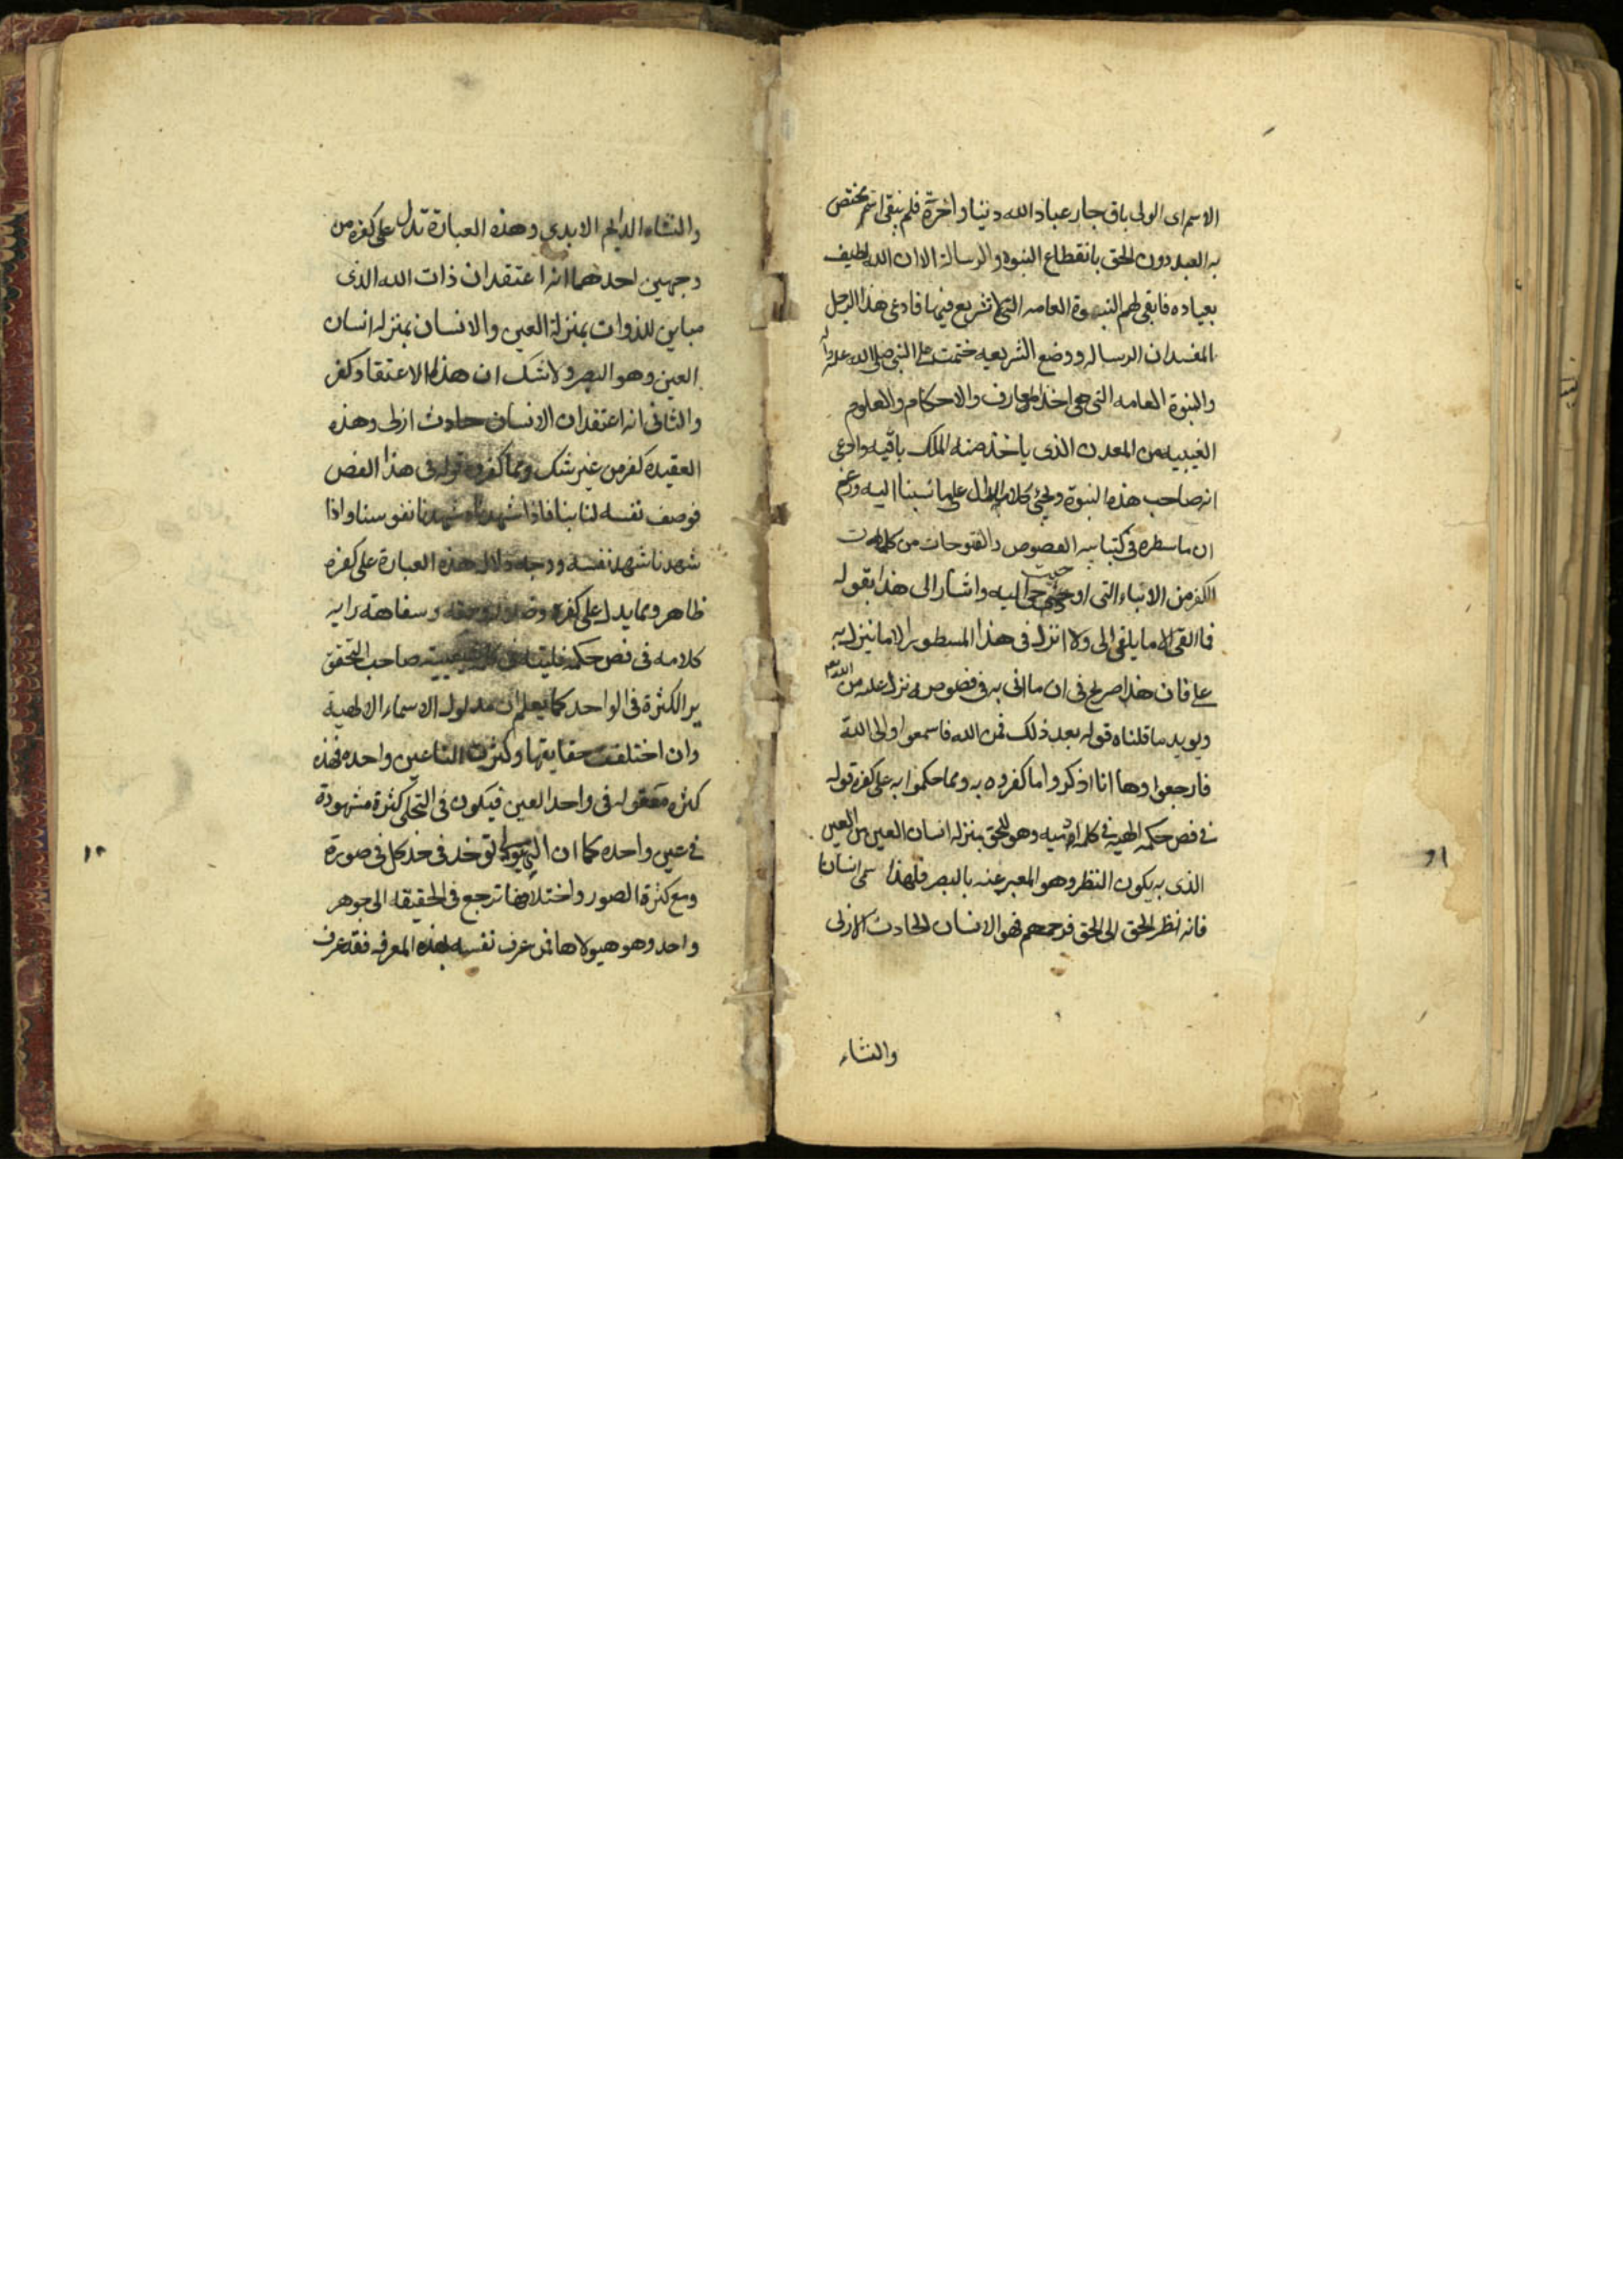 الاسم اى الولى باق جار عباد الله دنيا واخرة فلم يبق اسم مختص
به العبد دون الحق بانقطاع النبوه والرسالة الا ان الله لطيف
بعباده فابقى لهم النبوة العامه التى لا تشريع فيها فادعى هذا الرجل
المفسد ان الرساله ووضع الشريعه ختمت على النبى صلى الله عليه واله
والنبوة العامه التى هى اخذ المعارف والاحكام والعلوم
الغيبيه من المعدن الذى ياخذ منه الملك باقيه وادعى
انه صاحب هذه النبوة ويجئ كلام على ما نسبنا اليه وزعم
ان ما سطره فى كتبابيه الفصوص والفتوحات من كلمات
الكفر من الانباء التى اوحيت اليه واشار الى هذا بقوله
فما القى الا ما يلقى الى ولا انزل فى هذا المسطور الا ما ينزل به
على فان هذا صريح فى ان ما اتى به فى فصوصه نزل عليه من الله
ويويد ما قلناه قوله بعد ذلك فمن الله فاسمعوا والى الله
فارجعوا وها انا اذكر واما كفروه به ومما حكموا به على كفره قوله
فى فص حكمه الهيه فى كلمه ادميه وهو للحق بمنزله انسان العين من العين
الذى به يكون النظر وهو المعبر عنه بالبصر فلهذا سمى انسانا
فانه نظر الحق الى الحق فرحمهم فهو الانسان الحادث الازلى
والنشاء
والنشاء الدايم الابدى وهذه العبارة تدل على كفره من
وجهين احدهما انه اعتقد ان ذات الله الذى
مباين للذوات بمنزلة العين والانسان بمنزله انسان
العين وهو البصر ولا شك ان هذا الاعتقاد كفر
والثانى انه اعتقد ان الانسان حادث ازلى وهذه
العقيده كفر من غير شك ومما كفروه قوله فى هذا الفص
فوصف نفسه لنا بنا فاذا شهدناه شهدنا نفوسنا واذا
شهدنا شهد نفسه ووجه دلاله هذه العبارة على كفره
ظاهر ومما يدل على كفره وسفاهة رايه
كلامه فى فص حكمه صاحب التحقق
يرا الكثرة فى الواحد كما يعلم ان مدلول الاسماء الالهية
وان اختلفت حقايقها وكثرت انها عين واحده فهذه
كثره معقوله فى واحد العين فيكون فى التجلى كثرة مشهودة
فى عين واحده كما ان الهيولى توخذ فى حد كل صورة
ومع كثرة الصور واختلافها ترجع فى الحقيقه الى جوهر
واحد وهو هيولاها فمن عرف نفسه بهذه المعرفه فقد عرف